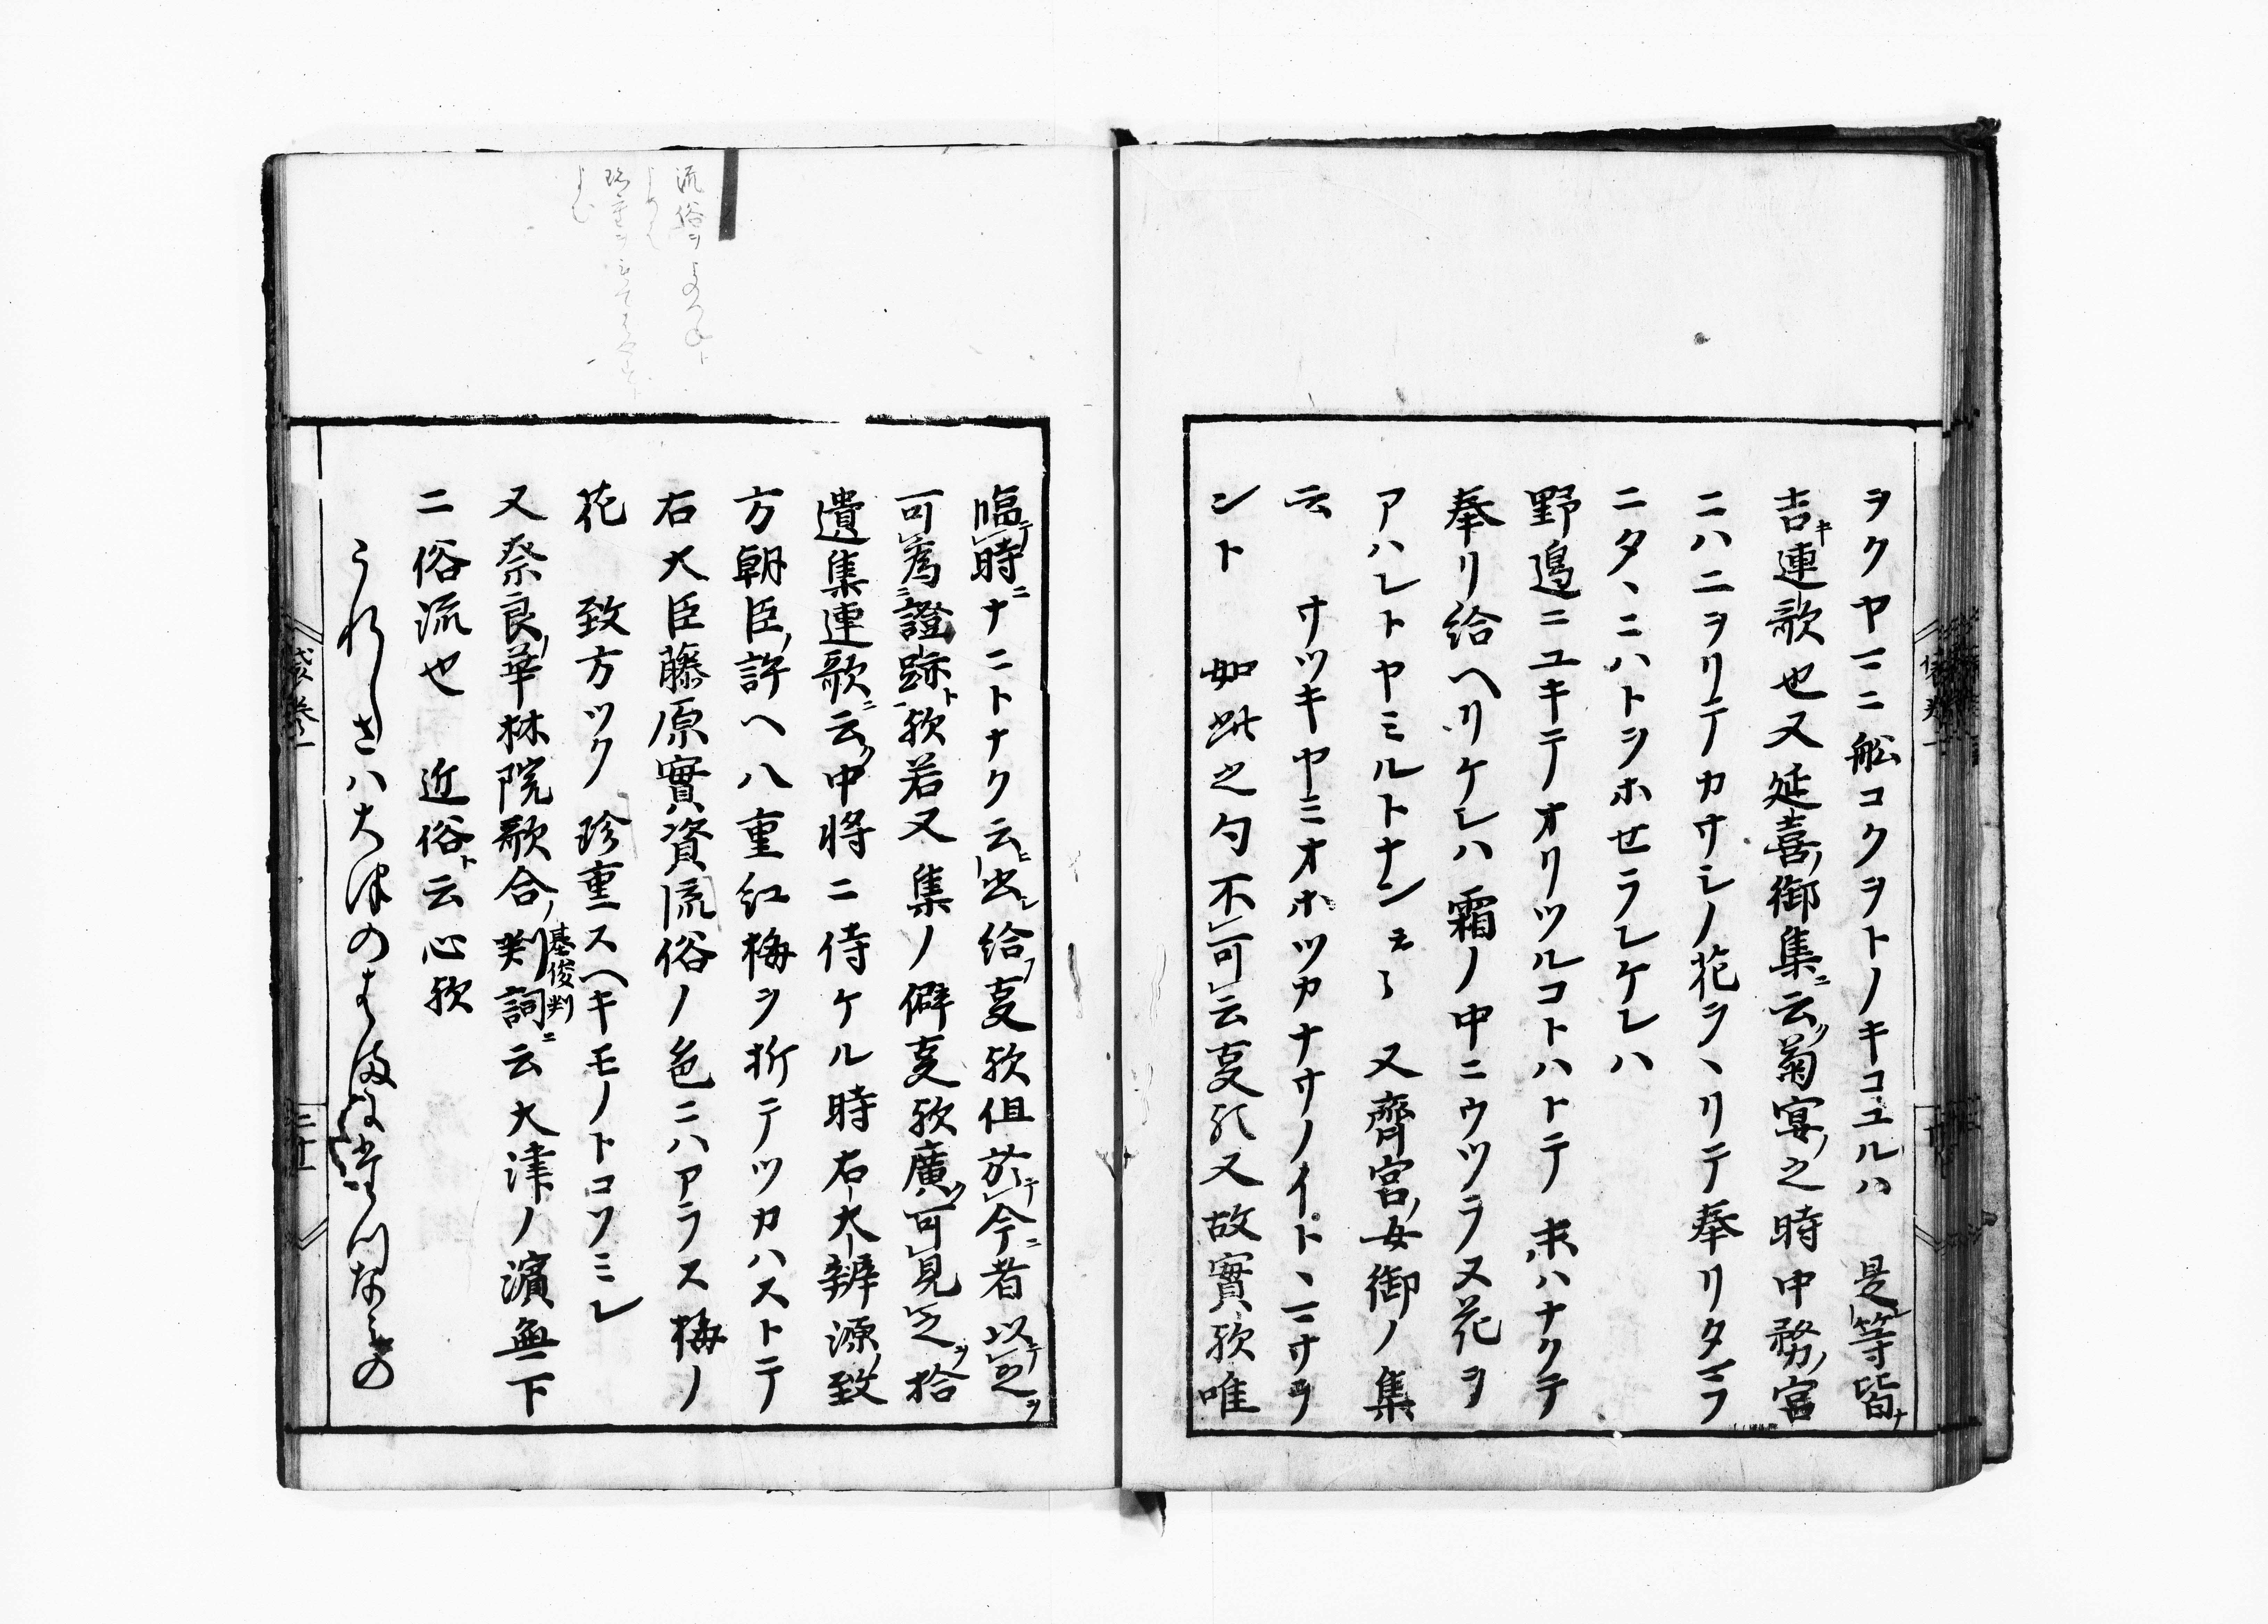 ヲクヤマニ舩コクヲトノキコユルハ　是等皆
吉連歌也又延喜御集ニ云菊宴之時中務ノ宮
ニハニヲリテカサシノ花ヲヽリテ奉リタマフ
ニタヽニハトヲホセラレケレハ
野邉ニユキテオリツルコトハトテ求ハナクテ
奉リ給ヘリケレハ霜ノ中ニウツラヌ花ヲ
アハレトヤミルトナン云々　又齊宮ノ女御ノ集
云　サツキヤミオホツカナサノイトヽマサラ
ント　如此之句不可云㕝欤又故實欤唯
臨時ニナニトナク云出給フ㕝欤但於今者以之
可為證跡欤若又集ノ僻㕝欤廣可見之拾
遺集連歌ニ云中将ニ侍ケル時右大辨源致
方朝臣ノ許ヘ八重紅梅ヲ折テツカハストテ
右大臣藤原實資流俗ノ色ニハアラス梅ノ
花　致方ツク　珍重スヘキモノトコソミレ
又奈良華林院歌合ノ判詞ニ云大津ノ濱無下
基俊判
ニ俗流也　近俗ト云心欤
袋巻一